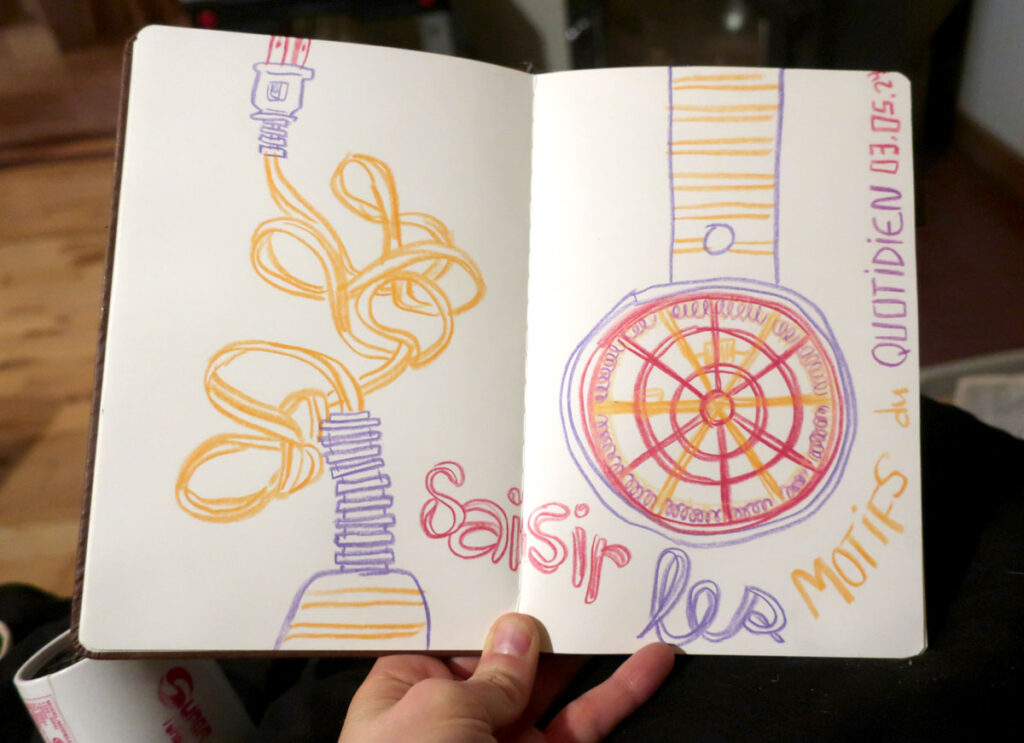 saisir les MOTIFS du QUOTIDIEN 03.05.24